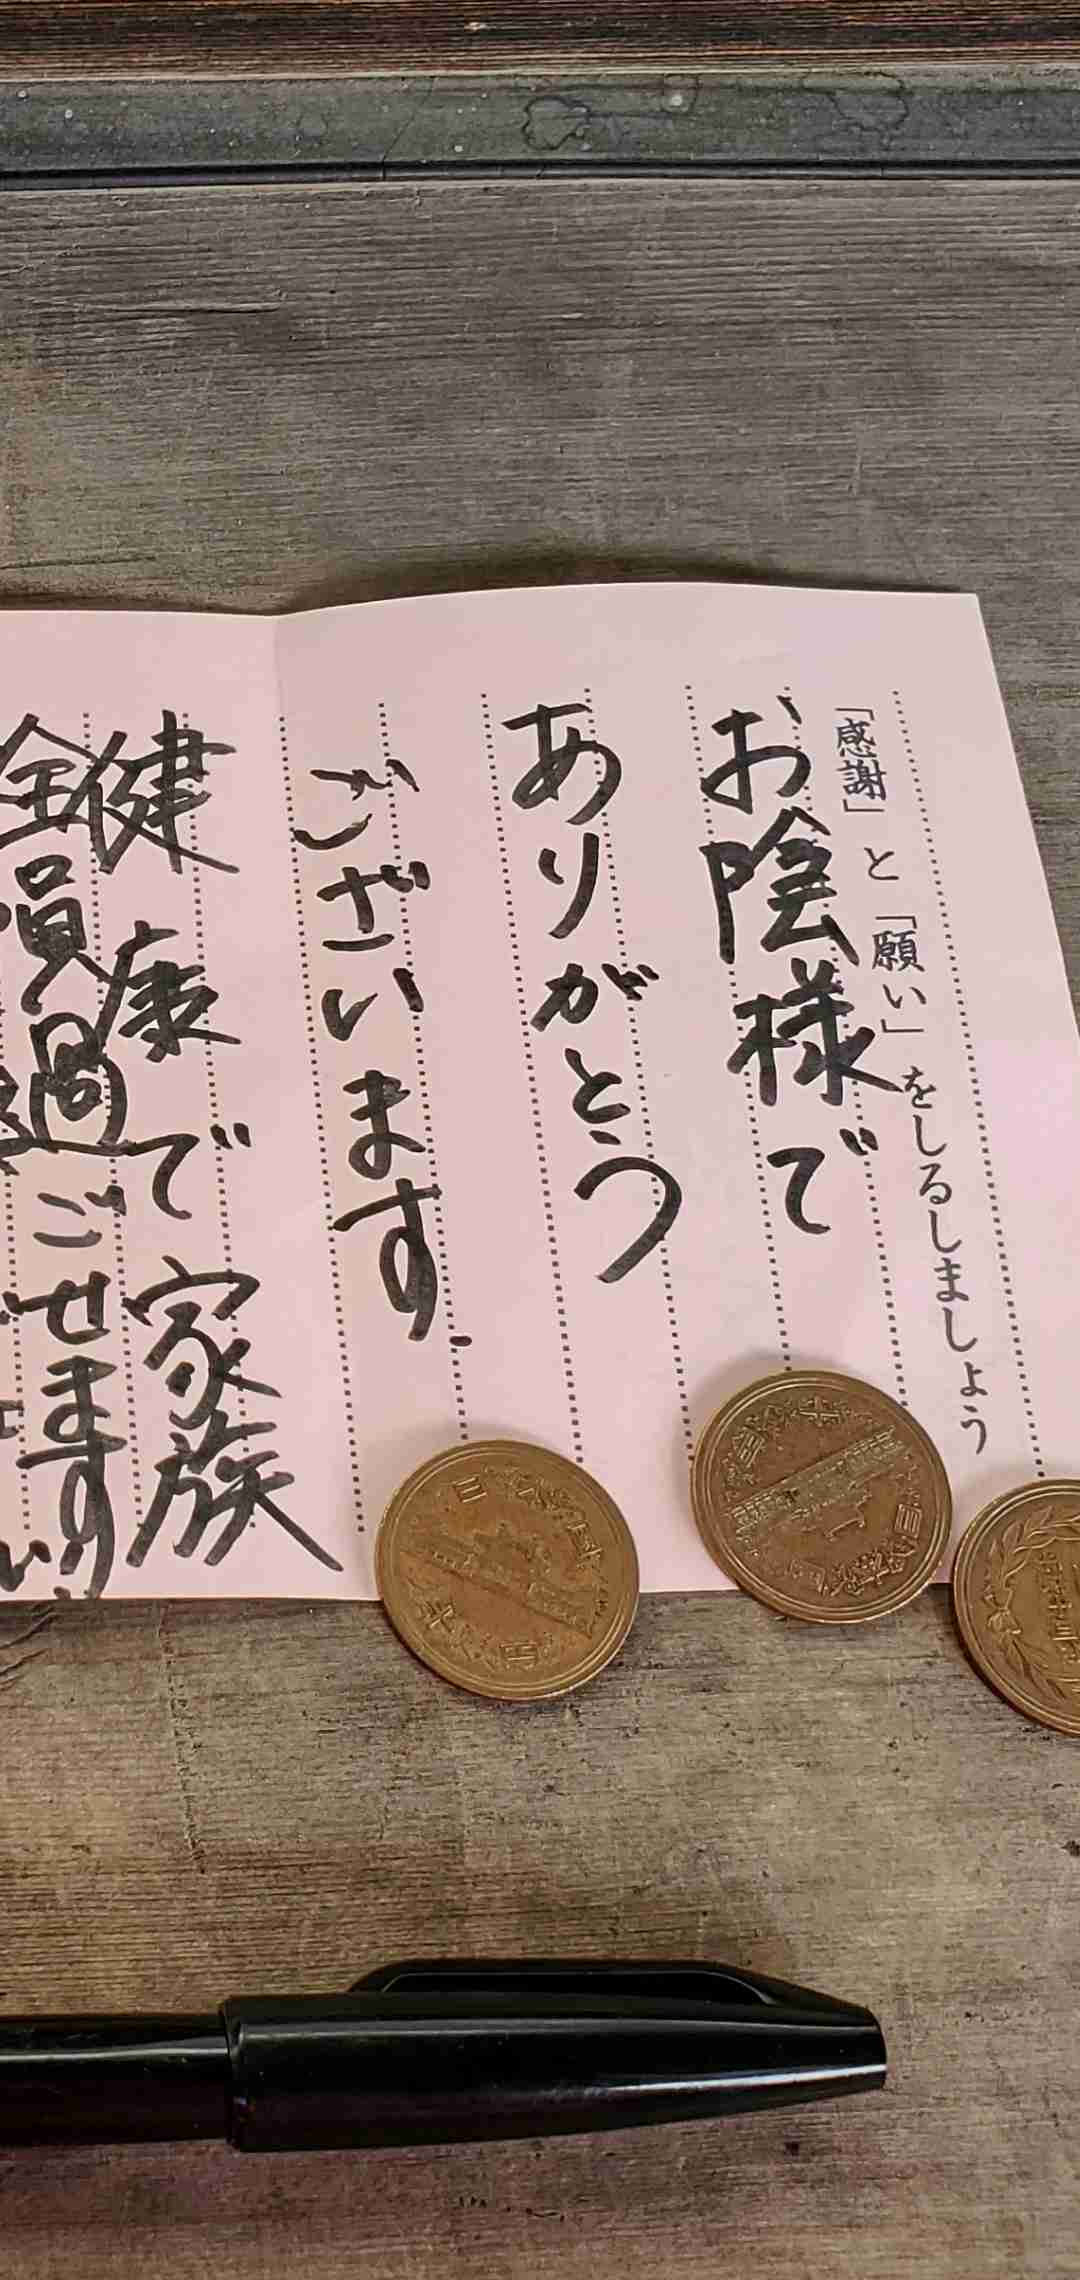 「感謝」と「願い」をしるしましょう
お陰様で
ありがとう
ございます.
健康で家族
全員過ごせます
日本国
十円
日本国